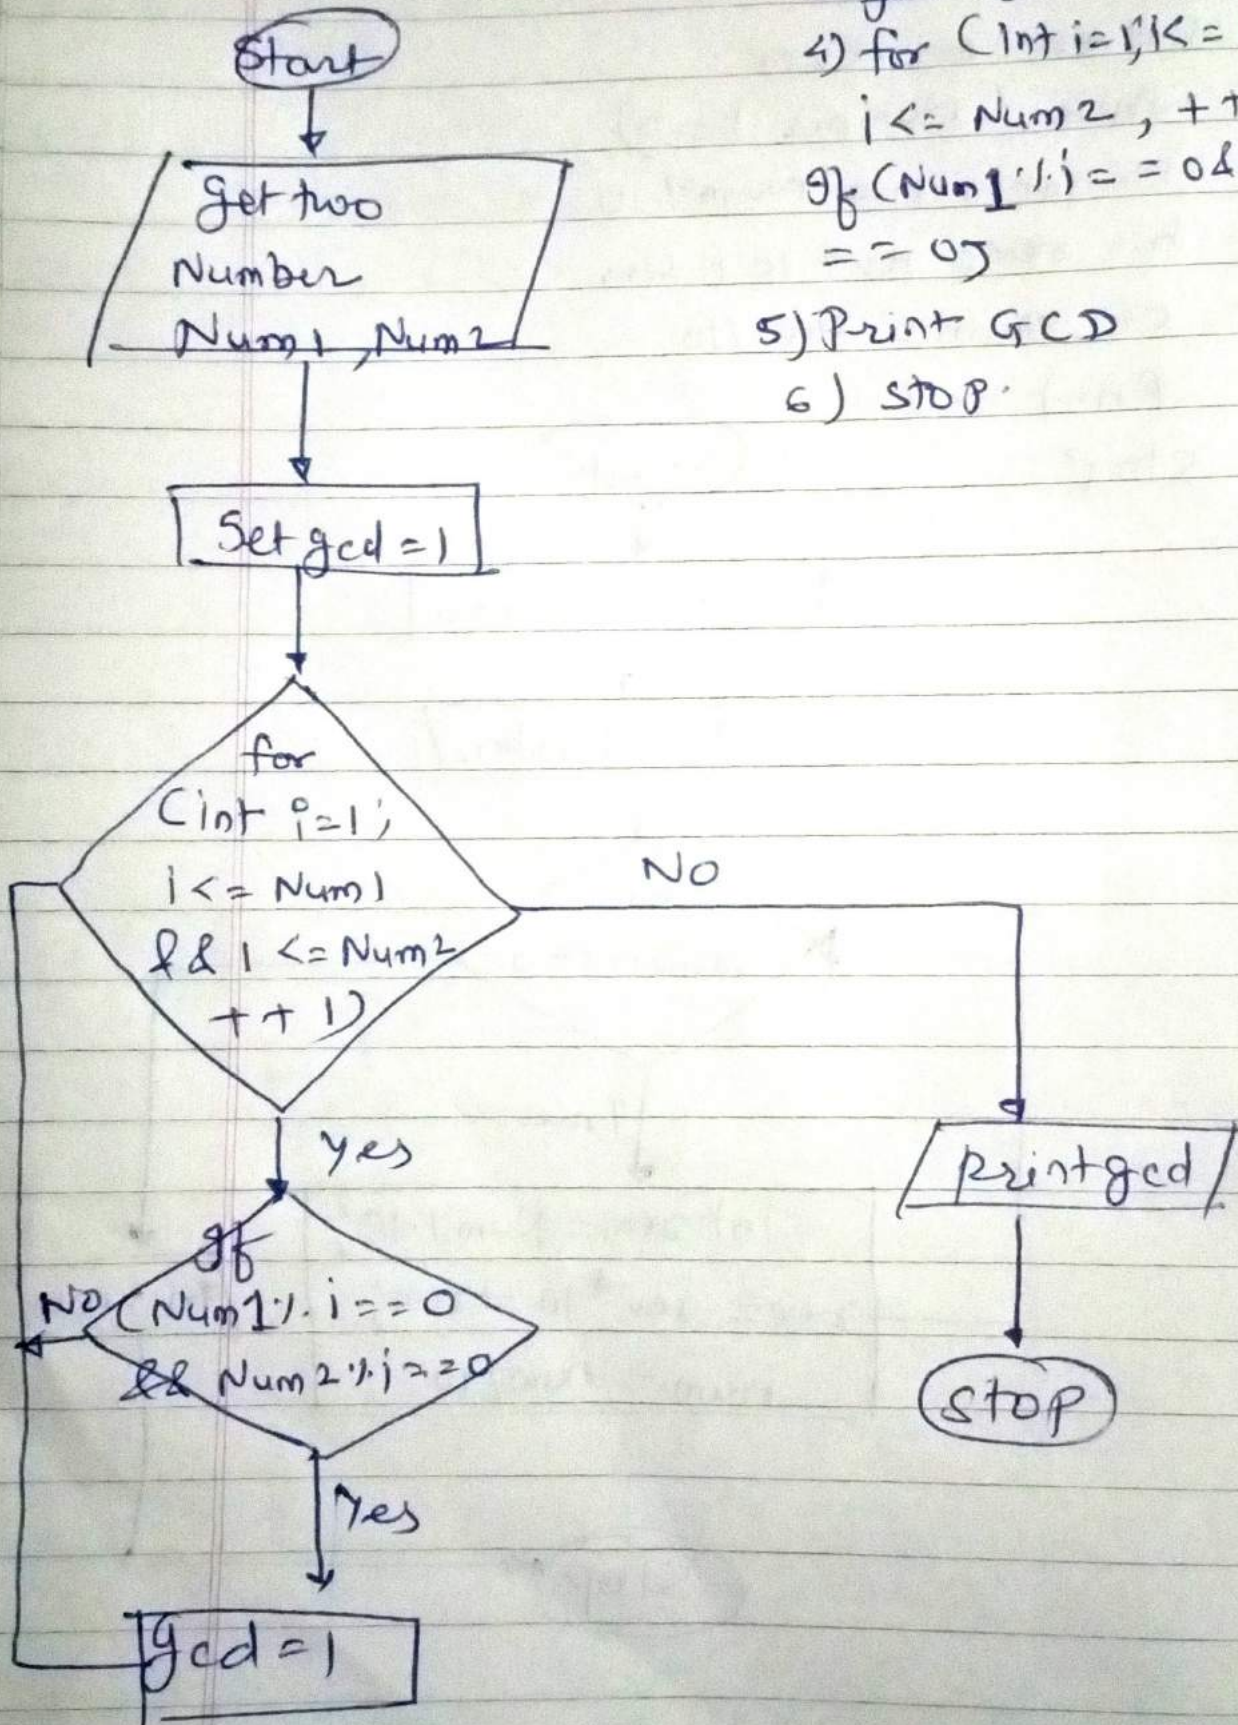 Start
get two
Number
Num1, Num2
Set gcd = 1
for
(int i=1;
i <= Num1
&& i <= Num2
++ i)
NO
Yes
If
(Num1 % i == 0
&& Num2 % i == 0
NO
Yes
gcd = 1
print gcd
Stop
4) for (int i=1; i<=
i <= Num2, ++
If (Num1 % i == 0 &
== 0)
5) Print GCD
6) stop.